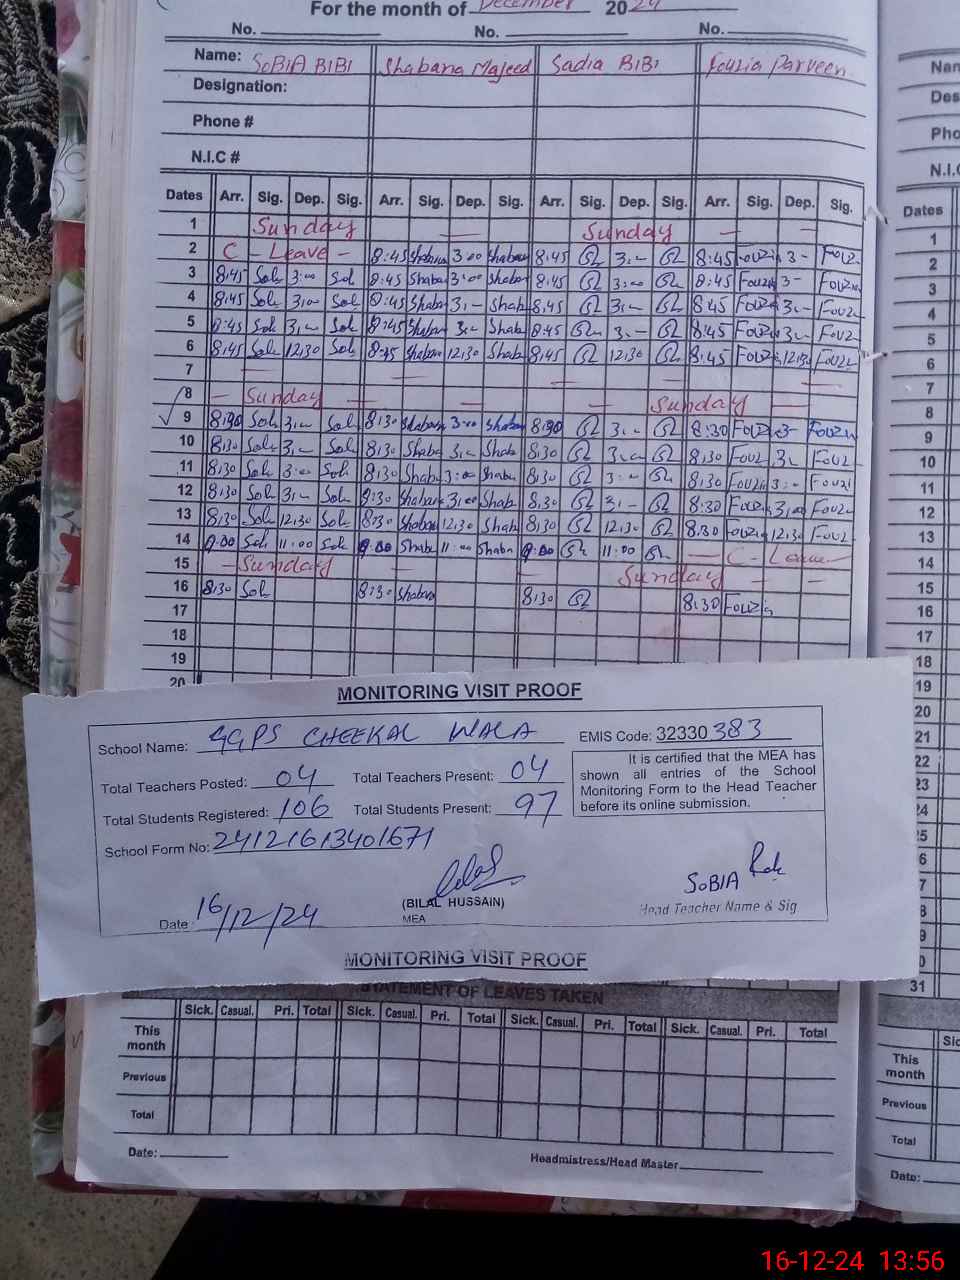 For the month of December 2024
No. No. No.
Name: SOBIA BIBI Shabana Majeed Sadia BIBI Fouzia Parveen
Designation:
Phone #
N.I.C #
Dates Arr. Sig. Dep. Sig. Arr. Sig. Dep. Sig. Arr. Sig. Dep. Sig. Arr. Sig. Dep. Sig.
1 Sunday — Sunday — —
2 C - Leave - 8:45 Shabana 3:00 Shabana 8:45 3:- 8:45 Fouzia 3-
3 8:45 Sob 3:00 Sob 8:45 Shaba 3:00 Shaba 8:45 3:00 8:45 Fouzia 3-
4 8:45 Sob 3:00 Sob 8:45 Shaba 3:- Shab 8:45 3:- 8:45 Fouzia 3:-
5 8:45 Sob 3:- Sob 8:45 Shaban 3:- Shab 8:45 3:- 8:45 Fouzia 3:-
6 8:45 Sob 12:30 Sob 8:45 Shaban 12:30 Shab 8:45 12:30 8:45 Fouzi 12:30
7 — — — — —
8 — Sunday — — Sunday —
9 Sob 3:- Sob 8:30 Shabana 3:00 Shaba 3:- 8:30 Fouzi 3-
10 8:30 Sob 3:- Sob 8:30 Shaba 3:- Shab 8:30 3:- 8:30 Fouz 3:-
11 8:30 Sob 3:00 Sob 8:30 Shaba 3:00 Shaba 8:30 3:- 8:30 Fouzia 3:-
12 8:30 Sob 3:- Sob 8:30 Shaban 3:00 Shab 8:30 3:- 8:30 Fouzia 3:00
13 8:30 Sob 12:30 Sob 8:30 Shaban 12:30 Shab 8:30 12:30 8:30 Fouzia 12:30
14 9:00 Sob 11:00 Sob 9:00 Shaba 11:00 Shaba 9:00 11:00 — C - Leave —
15 — Sunday — — Sunday — —
16 8:30 Sob 8:30 Shabana 8:30 8:30 Fouzia
17
18
19
20
MONITORING VISIT PROOF
School Name: GGPS CHEEKAL WALA EMIS Code: 32330383
Total Teachers Posted: 04 Total Teachers Present: 04
Total Students Registered: 106 Total Students Present: 97
It is certified that the MEA has
shown all entries of the School
Monitoring Form to the Head Teacher
before its online submission.
School Form No: 24121613401671
SOBIA
Date: 16/12/24 (BILAL HUSSAIN) Head Teacher Name & Sig
MEA
MONITORING VISIT PROOF
STATEMENT OF LEAVES TAKEN
Sick. Casual. Pri. Total Sick. Casual. Pri. Total Sick. Casual. Pri. Total Sick. Casual. Pri. Total
This month
Previous
Total
Date: Headmistress/Head Master
Nan
Des
Pho
N.I.C
Dates
1
2
3
4
5
6
7
8
9
10
11
12
13
14
15
16
17
18
19
20
21
22
23
24
25
6
7
8
9
0
31
Sic
This month
Previous
Total
Date:
16-12-24 13:56